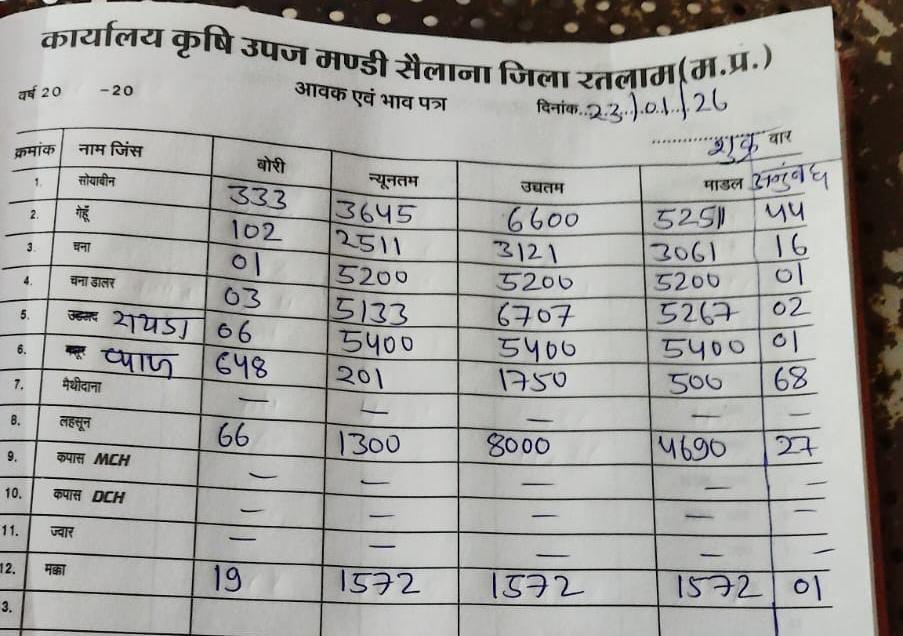 कार्यालय कृषि उपज मण्डी सैलाना जिला रतलाम(म.प्र.)
वर्ष 20 -20 आवक एवं भाव पत्र दिनांक...23/01/26
शुक्र वार
क्रमांक नाम जिंस बोरी न्यूनतम उच्चतम माडल अनुबंध
1. सोयाबीन 333 3645 6600 5251 44
2. गेहूँ 102 2511 3121 3061 16
3. चना 01 5200 5200 5200 01
4. चना डालर 03 5133 6707 5267 02
5. रायडा 06 5400 5400 5400 01
6. प्याज 648 201 1750 500 68
7. मैथीदाना — — — — —
8. लहसून 66 1300 8000 4690 27
9. कपास MCH — — — — —
10. कपास DCH — — — — —
11. ज्वार — — — — —
12. मक्का 19 1572 1572 1572 01
3.